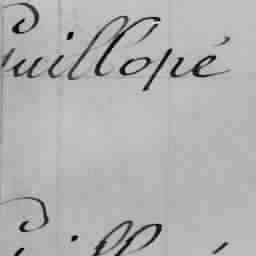 Guillopé